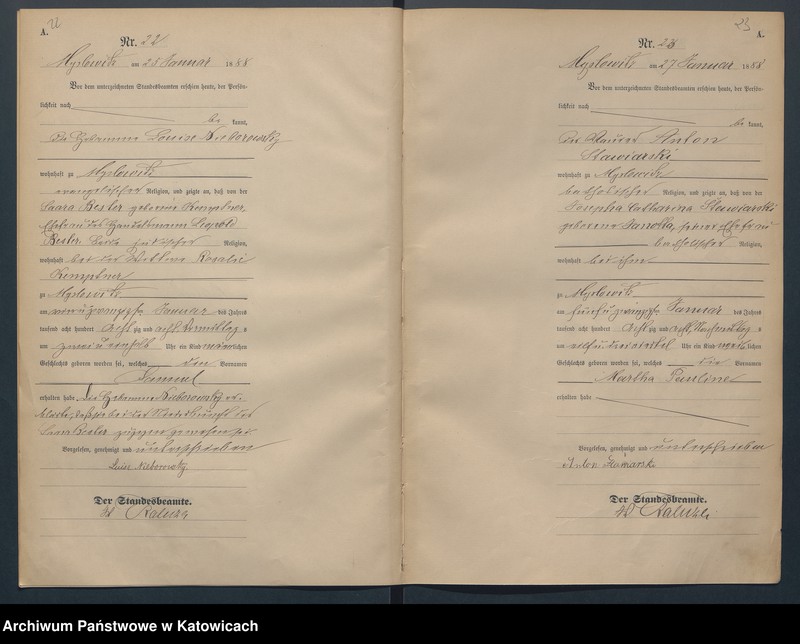 22
A.
Nr. 22
Myslowitz am 25 Januar 1888
Vor dem unterzeichneten Standesbeamten erschien heute, der Persön-
lichkeit nach
be kannt,
die Hebamme Louise Nieborowsky
wohnhaft zu Myslowitz
evangelischer Religion, und zeigte an, daß von der
Saara Besler geborene Kemptner,
Ehefrau des Handelsmann Leopold
Besler, beide jüdischer Religion,
wohnhaft bei der Wittwe Rosalie
Kemptner
zu Myslowitz
am Januar des Jahres
tausend acht hundert Acht zig und acht Vormittag s
um zwei u einhalb Uhr ein Kind männlichen
Geschlechts geboren worden sei, welches den Vornamen
Samuel
erhalten habe. Die Hebamme Nieborowsky er-
klärte, daß sie bei der Niederkunft der
Saara Besler zugegen gewesen sei
Vorgelesen, genehmigt und unterschrieben
Luise Nieborowsky.
Der Standesbeamte.
Kaluza
23
A.
Nr. 23
Myslowitz am 27 Januar 1888
Vor dem unterzeichneten Standesbeamten erschien heute, der Persön-
lichkeit nach
be kannt,
der Anton
Slawiarski
wohnhaft zu Myslowitz
katholischer Religion, und zeigte an, daß von der
Josepha Catharina Slawiarski
geborene Janotta, seiner Ehefrau
katholischer Religion,
wohnhaft bei ihm
zu Myslowitz
am fünf u zwanzigsten Januar des Jahres
tausend acht hundert Acht zig und acht, Nachmittag s
um drei viertel Uhr ein Kind weib lichen
Geschlechts geboren worden sei, welches die Vornamen
Martha Pauline
erhalten habe
Vorgelesen, genehmigt und unterschrieben
Anton
Der Standesbeamte.
Kaluza
Archiwum Państwowe w Katowicach